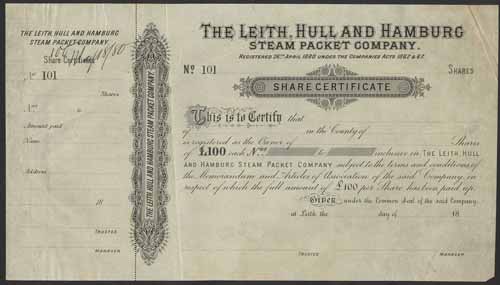 THE LEITH, HULL AND HAMBURG
STEAM PACKET COMPANY.
Share Certificate
No 101
Shares
Nos to
Amount paid
Name
Address
18
TRUSTEE
MANAGER
THE LEITH, HULL AND HAMBURG STEAM PACKET COMPANY.
THE LEITH, HULL AND HAMBURG
STEAM PACKET COMPANY.
REGISTERED 26TH APRIL 1880 UNDER THE COMPANIES ACTS 1862 & 67.
No 101
SHARES
SHARE CERTIFICATE
This is to Certify that
of in the County of
is registered as the Owner of Shares
of £100 each Nos to inclusive in THE LEITH, HULL
AND HAMBURG STEAM PACKET COMPANY subject to the terms and conditions of
the Memorandum and Articles of Association of the said Company, in
respect of which the full amount of £100 per Share has been paid up.
GIVEN under the Common Seal of the said Company,
at Leith the day of 18
TRUSTEE
MANAGER